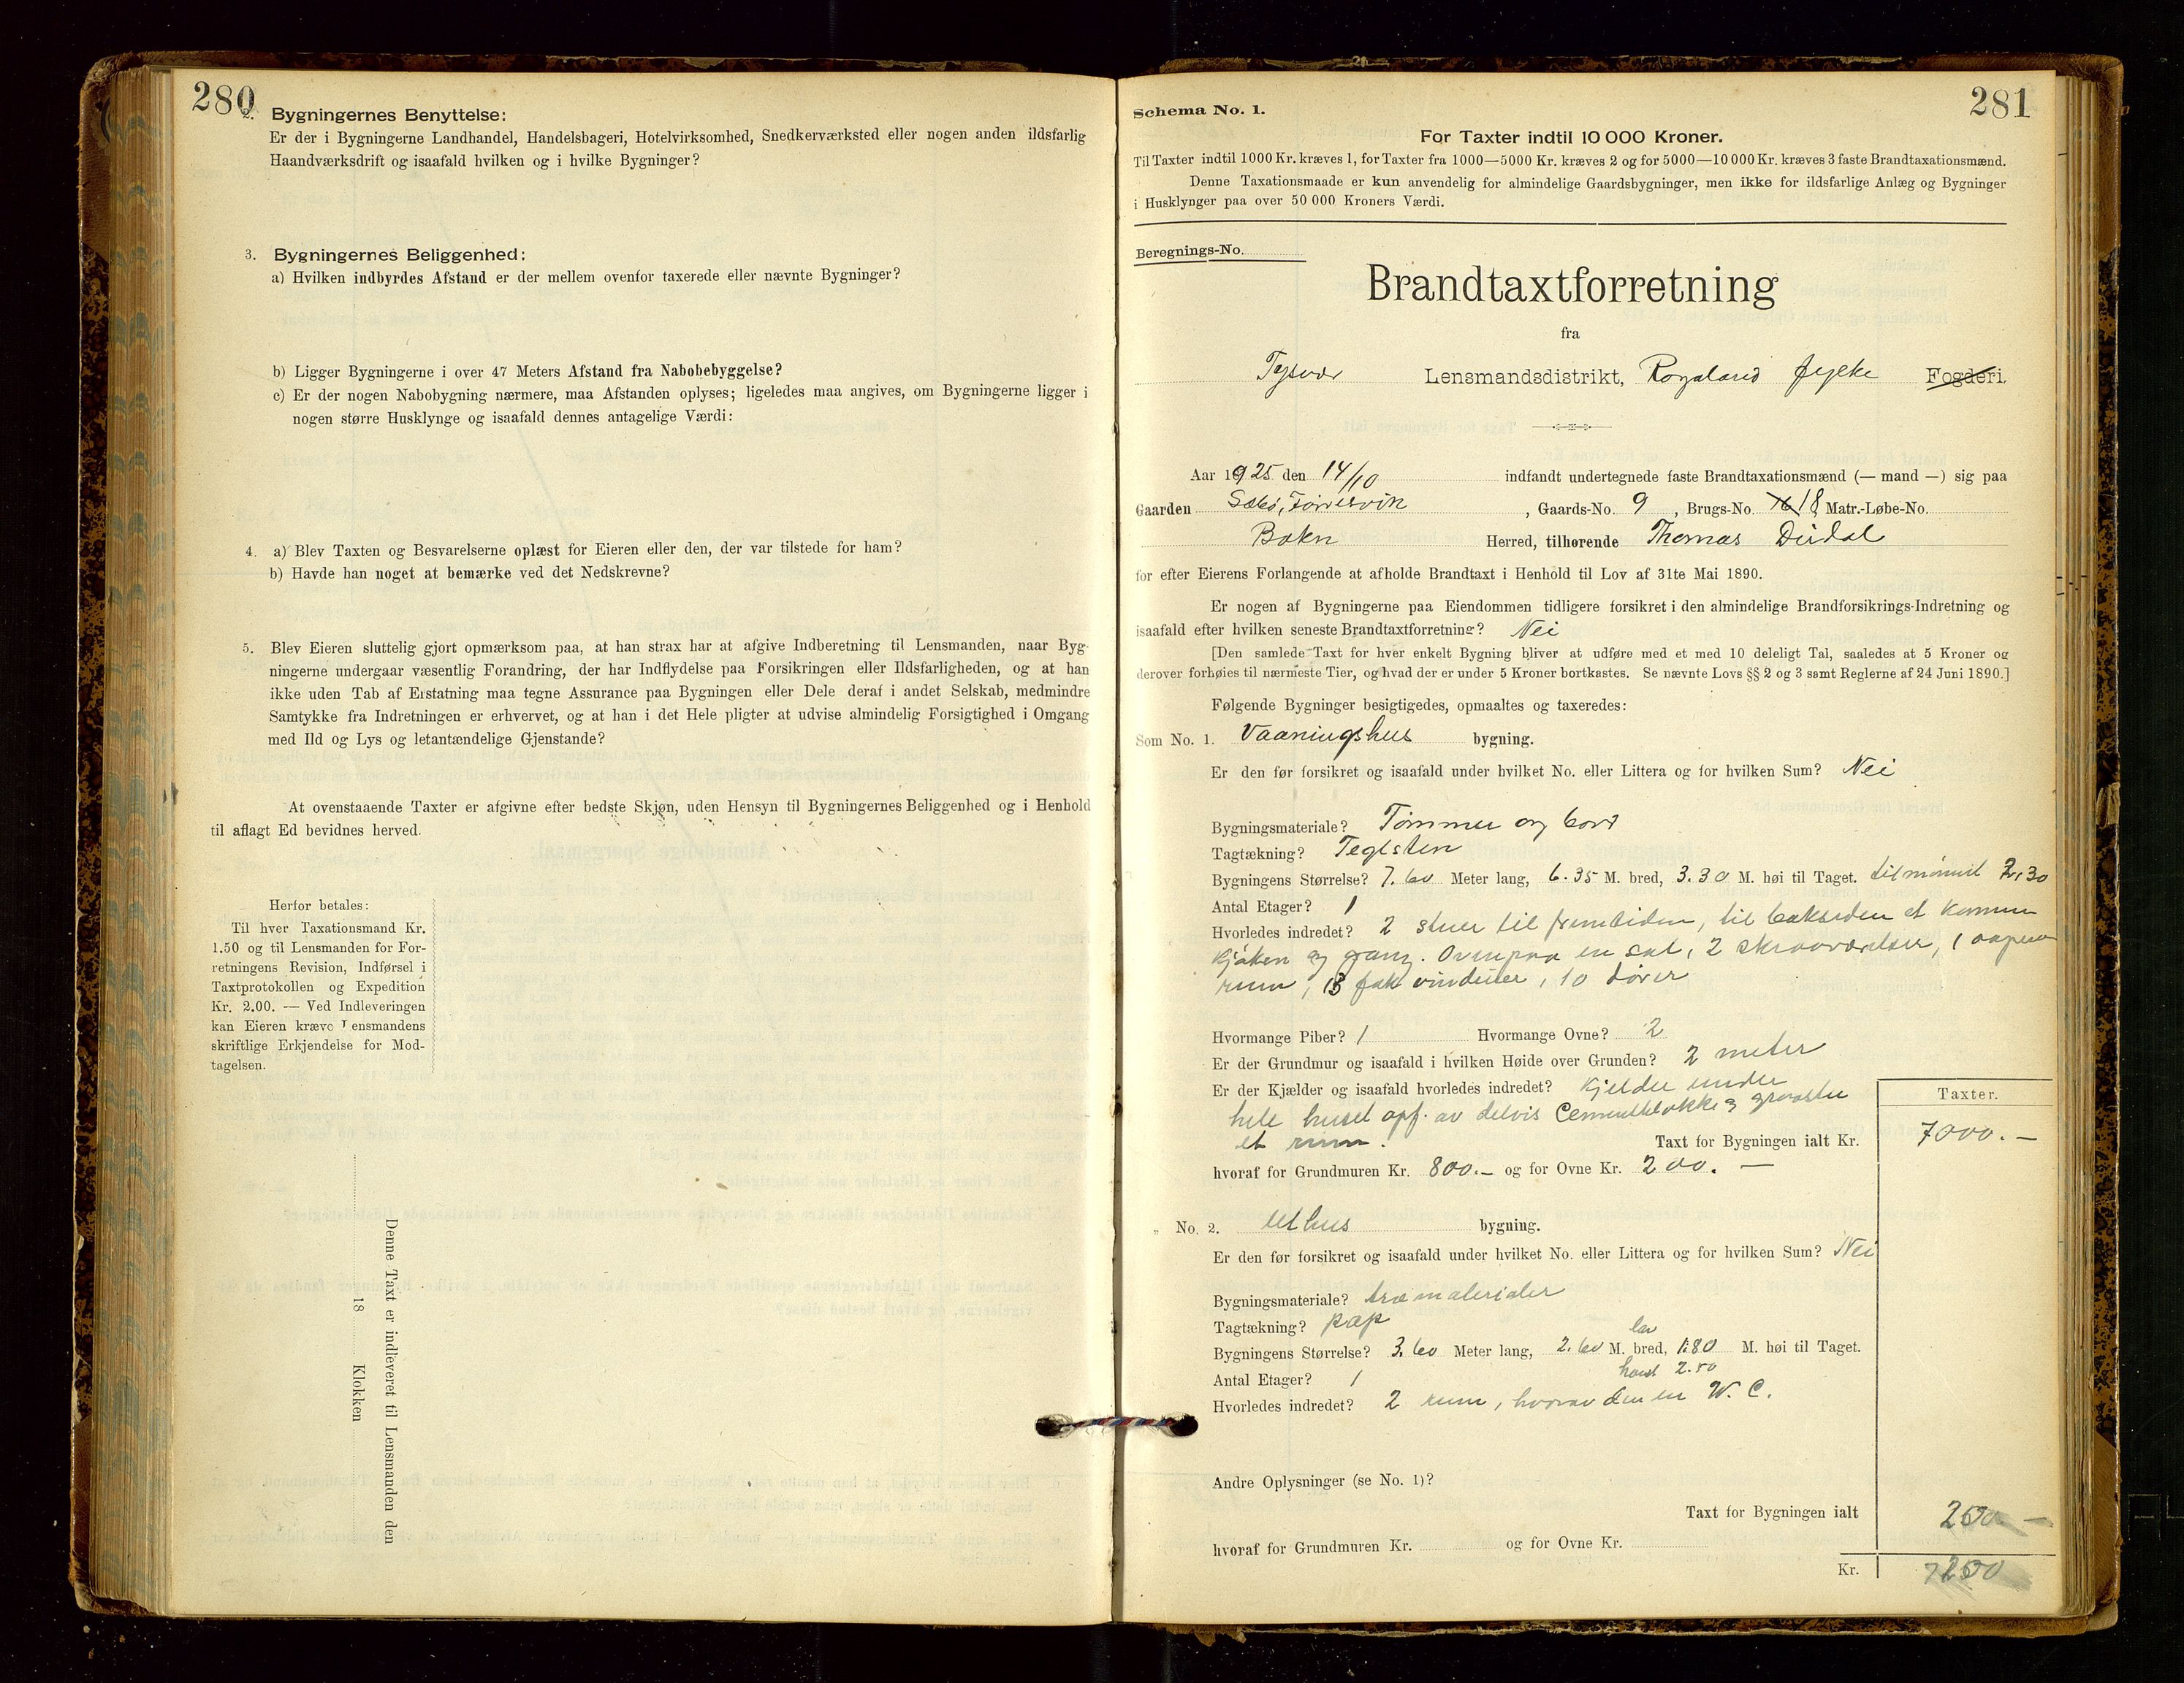 280
2. Bygningernes Benyttelse:
Er der i Bygningerne Landhandel, Handelsbageri, Hotelvirksomhed, Snedkerværksted eller nogen anden ildsfarlig
Haandværksdrift og isaafald hvilken og i hvilke Bygninger?
3. Bygningernes Beliggenhed:
a) Hvilken indbyrdes Afstand er der mellem ovenfor taxerede eller nævnte Bygninger?
b) Ligger Bygningerne i over 47 Meters Afstand fra Nabobebyggelse?
c) Er der nogen Nabobygning nærmere, maa Afstanden oplyses; ligeledes maa angives, om Bygningerne ligger i
nogen større Husklynge og isaafald dennes antagelige Værdi:
4. a) Blev Taxten og Besvarelserne oplæst for Eieren eller den, der var tilstede for ham?
b) Havde han noget at bemærke ved det Nedskrevne?
5. Blev Eieren sluttelig gjort opmærksom paa, at han strax har at afgive Indberetning til Lensmanden, naar Byg-
ningerne undergaar væsentlig Forandring, der har Indflydelse paa Forsikringen eller Ildsfarligheden, og at han
ikke uden Tab af Erstatning maa tegne Assurance paa Bygningen eller Dele deraf i andet Selskab, medmindre
Samtykke fra Indretningen er erhvervet, og at han i det Hele pligter at udvise almindelig Forsigtighed i Omgang
med Ild og Lys og letantændelige Gjenstande?
At ovenstaaende Taxter er afgivne efter bedste Skjøn, uden Hensyn til Bygningernes Beliggenhed og i Henhold
til aflagt Ed bevidnes herved.
Herfor betales:
Til hver Taxationsmand Kr.
1.50 og til Lensmanden for For-
retningens Revision, Indførsel i
Taxtprotokollen og Expedition
Kr. 2.00. — Ved Indleveringen
kan Eieren kræve Lensmandens
skriftlige Erkjendelse for Mod-
tagelsen.
Denne Taxt er indleveret til Lensmanden den
18 Klokken
281
Schema No. 1.
For Taxter indtil 10 000 Kroner.
Til Taxter indtil 1000 Kr. kræves 1, for Taxter fra 1000—5000 Kr. kræves 2 og for 5000—10 000 Kr. kræves 3 faste Brandtaxationsmænd.
Denne Taxationsmaade er kun anvendelig for almindelige Gaardsbygninger, men ikke for ildsfarlige Anlæg og Bygninger
i Husklynger paa over 50 000 Kroners Værdi.
Beregnings-No.
Brandtaxtforretning
fra
Tysvær Lensmandsdistrikt, Rogaland fylke Fogderi.
Aar 1925 den 14/10 indfandt undertegnede faste Brandtaxationsmænd (— mand —) sig paa
Gaarden Sæbø, , Gaards-No. 9 , Brugs-No. 18 Matr.-Løbe-No.
Bokn Herred, tilhørende Thomas
for efter Eierens Forlangende at afholde Brandtaxt i Henhold til Lov af 31te Mai 1890.
Er nogen af Bygningerne paa Eiendommen tidligere forsikret i den almindelige Brandforsikrings-Indretning og
isaafald efter hvilken seneste Brandtaxtforretning? Nei
[Den samlede Taxt for hver enkelt Bygning bliver at udføre med et med 10 deleligt Tal, saaledes at 5 Kroner og
derover forhøies til nærmeste Tier, og hvad der er under 5 Kroner bortkastes. Se nævnte Lovs §§ 2 og 3 samt Reglerne af 24 Juni 1890.]
Følgende Bygninger besigtigedes, opmaaltes og taxeredes:
Som No. 1. Vaaningshus bygning.
Er den før forsikret og isaafald under hvilket No. eller Littera og for hvilken Sum? Nei
Bygningsmateriale? Tømmer og bord
Tagtækning? Teglsten
Bygningens Størrelse? 7.60 Meter lang, 6.35 M. bred, 3.30 M. høi til Taget. til mønnet 2,30
Antal Etager? 1
Hvorledes indredet? 2 stuer til fremtiden, til baksiden et kammer
kjøken og gang. Ovenpaa en sal, 2 skraaværelser, 1 aapent
rum, 13 fak vinduer, 10 dører
Hvormange Piber? 1 Hvormange Ovne? 2
Er der Grundmur og isaafald i hvilken Høide over Grunden? 2 meter
Er der Kjælder og isaafald hvorledes indredet? Kjelder under
hele huset opf. av delvis Cementblokke og graasten
et rum. Taxt for Bygningen ialt Kr.
Taxter.
7000.—
hvoraf for Grundmuren Kr. 800.— og for Ovne Kr. 200.—
" No. 2. Uthus bygning.
Er den før forsikret og isaafald under hvilket No. eller Littera og for hvilken Sum? Nei
Bygningsmateriale? træmaterialer
Tagtækning? pap
Bygningens Størrelse? 3.60 Meter lang, 2.60 M. bred, lav 1.80 M. høi til Taget.
Antal Etager? 1 2.50
Hvorledes indredet? 2 rum, hvorav den en W. C.
Andre Oplysninger (se No. 1)?
Taxt for Bygningen ialt 250 —
hvoraf for Grundmuren Kr. og for Ovne Kr.
Kr. 7250